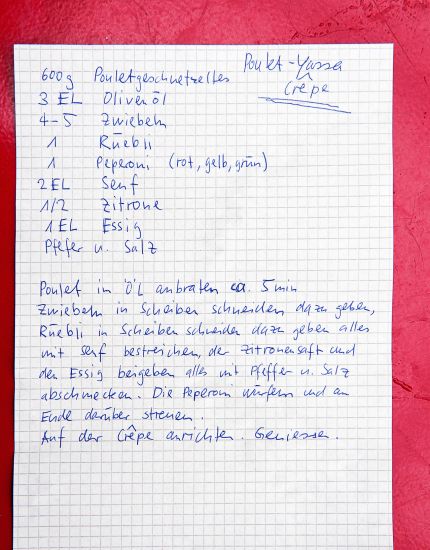 Poulet-Yassa
Crêpe
600g Pouletgeschnetzeltes
3 EL Olivenöl
4-5 Zwiebeln
1 Rüebli
1 Peperoni (rot, gelb, grün)
2 EL Senf
1/2 Zitrone
1 EL Essig
Pfefer u. Salz
Poulet in ÖL anbraten ca. 5 min
Zwiebeln in Scheiben schneiden dazu geben,
Rüebli in Scheiben schneiden dazu geben alles
mit senf bestreichen, der Zitronensaft und
den Essig beigeben alles mit Pfeffer u. Salz
abschmecken. Die Peperoni würfeln und am
Ende darüber streuen.
Auf der Crêpe anrichten. Geniessen.